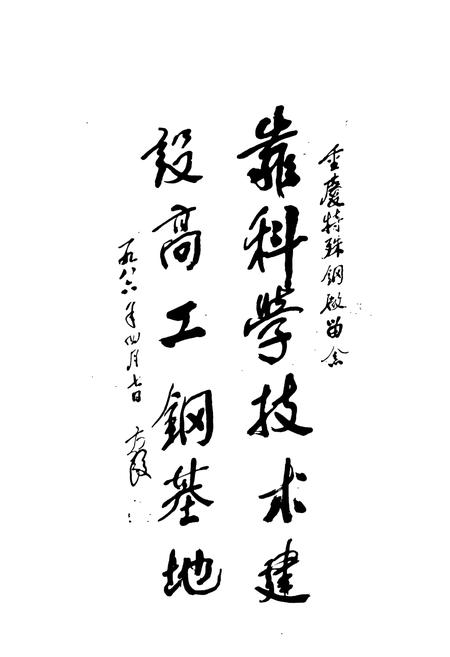 重慶特殊鋼廠留念
靠科學技术建
設高工鋼基地
一九八六年四月七日 方毅